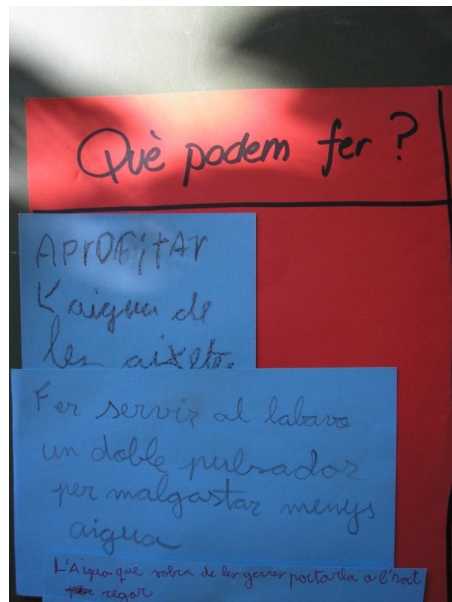 Què podem fer ?
AprOfitAr
L'aigua de
les aixetes
Fer servir al labavo
un doble pulsador
per malgastar menys
aigua
L'Aigua que sobra de les gerres portarla a l'hort
per regar